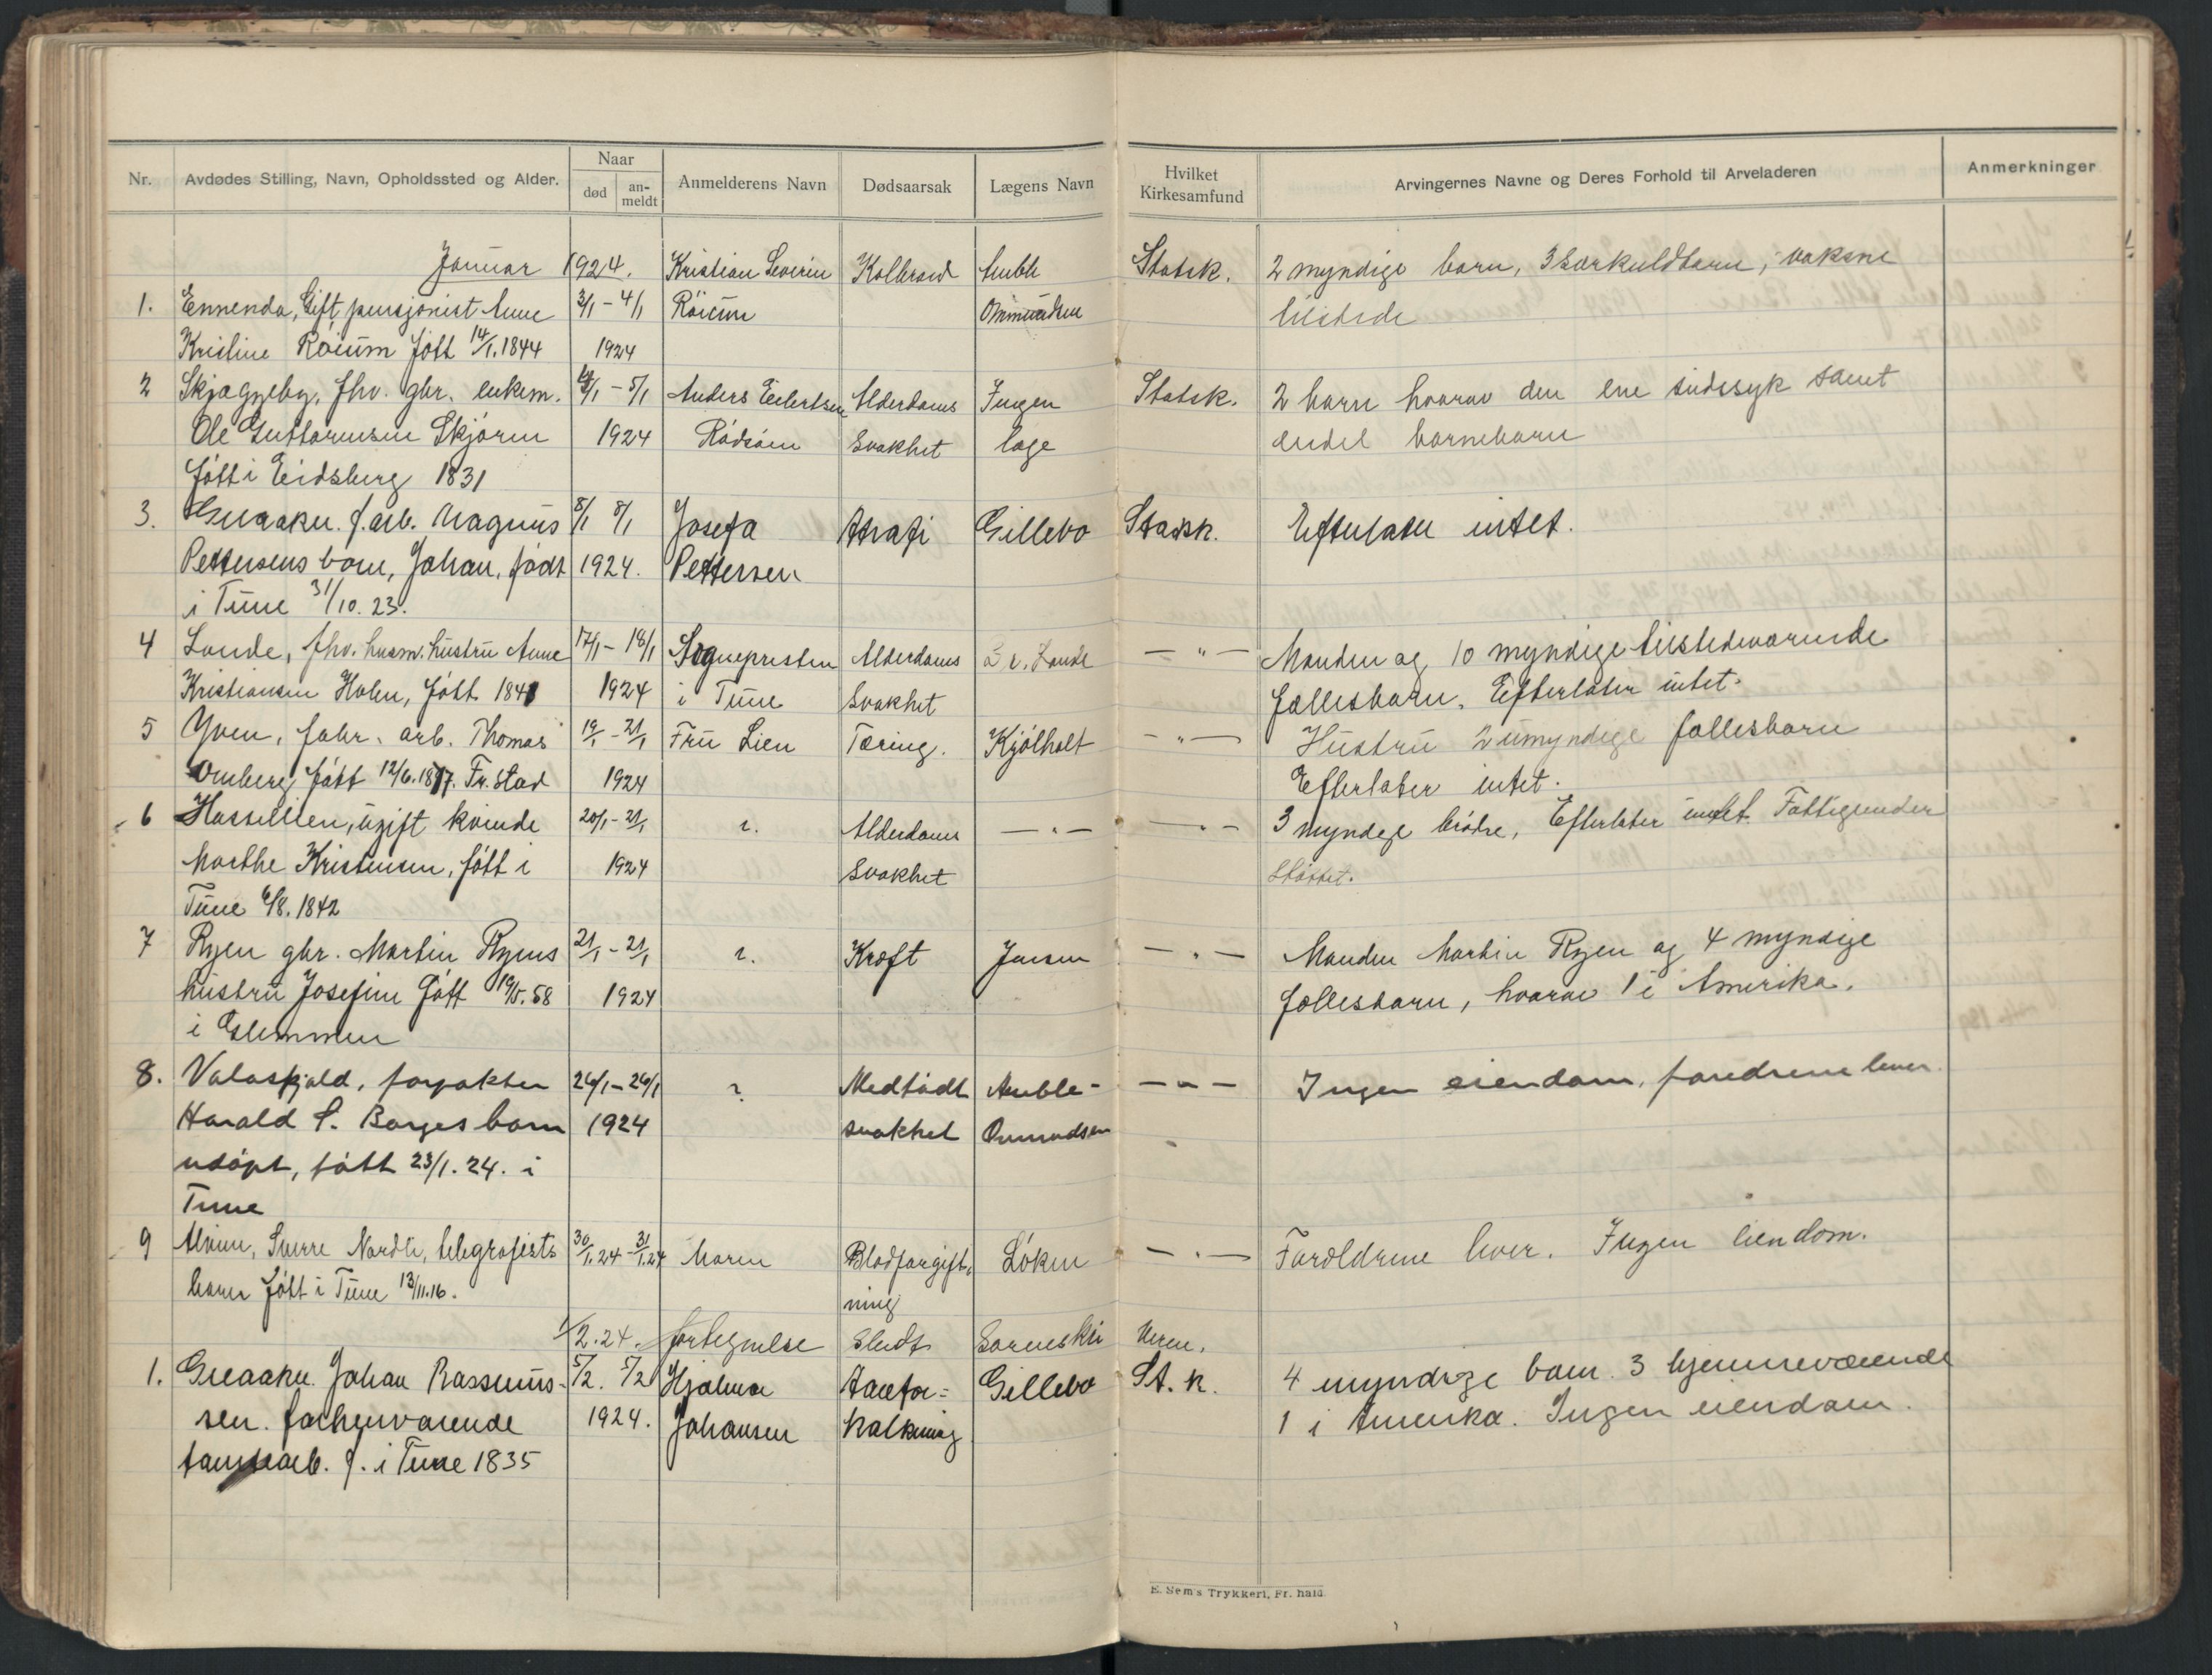 Nr. Avdødes Stilling, Navn, Opholdssted og Alder. Naar død an-meldt Anmelderens Navn Dødsaarsak Lægens Navn Hvilket Kirkesamfund Arvingernes Navne og Deres Forhold til Arveladeren Anmerkninger
Januar 1924. Kristian Severin Kolbrand Statsk. 2 myndige barn, 3 særkuldbarn, voksne
1. Ennenda, Gift pensjonist Anne 3/1 - 4/1 Röium Ommundsen tilstede
Kristine Röium fött 14/1. 1844 1924
2 Skjæggeby, fhv. gbr. enkem. 4/1 - 5/1 Anders Eilertsen Alderdoms Ingen Statsk. 2 barn hvorav den ene sindssyk samt
Ole Guttormsen Skjören 1924 Rödsöen svakhet læge endel barnebarn
fött i Eidsberg 1831
3. Greaaker. f.arb. Magnus 8/1 8/1 Josefa Atrofi Gillebo Statsk. Efterlater intet.
Pettersens barn, Johan, født 1924. Pettersen
i Tune 31/10. 23.
4 Lande, fhv. husm. hustru Anne 17/1 - 18/1 Sognepresten Alderdoms — " — Manden og 10 myndige tilstedeværende
Kristiansen Holen, fött 1841 1924 i Tune svakhet fællesbarn. Efterlater intet.
5 Yven, fabr. arb. Thomas 19/1 - 21/1 Fru Lien Tæring. Kjölholt — " — Hustru 2 umyndige fællesbarn
Omberg, fött 12/6. 1877. Fr.stad 1924 Efterlater intet.
6 Hasselien, ugift kvinde 20/1 - 21/1 ?. Alderdoms — " — — " — 3 myndige brödre, Efterlater intet. Fattigunder
Marthe Kristensen, fött i 1924 svakhet stöttet.
Tune 6/8. 1842
7 Ryen gbr. Martin Ryens 21/1 - 21/1 ?. Kræft Jensen — " — Manden Martin Ryen og 4 myndige
hustru Josefine fött 19/5. 58 1924 fællesbarn, hvorav 1 i Amerika.
i Glemmen
8. Valaskjold, forpakter 26/1 - 26/1 ? Medfödt Amble- — " — Ingen eiendom, foreldrene lever.
Harald S. Borges barn 1924 svakhet Ommundsen
udöpt, fött 23/1. 24. i
Tune
9 Alvim, Sverre Nordli, telegrafists 30/1.24 - 31/1.24 Moren Blodforgift- Löken — " — Foreldrene lever. Ingen eiendom.
barn fött i Tune 13/11.16. ning
1/2. 24. fortegnelse sendt Sorenskri veren.
1. Greaaker. Johan Rassmus- 5/2. 5/2 Hjalmar Aarefor- Gillebo St. k. 4 myndige barn. 3 hjemmeværende
sen. forhenværende 1924. Johansen kalkning 1 i Amerika. Ingen eiendom.
tomtearb. f. i Tune 1835
E. Sem's Trykkeri, Fr. hald.